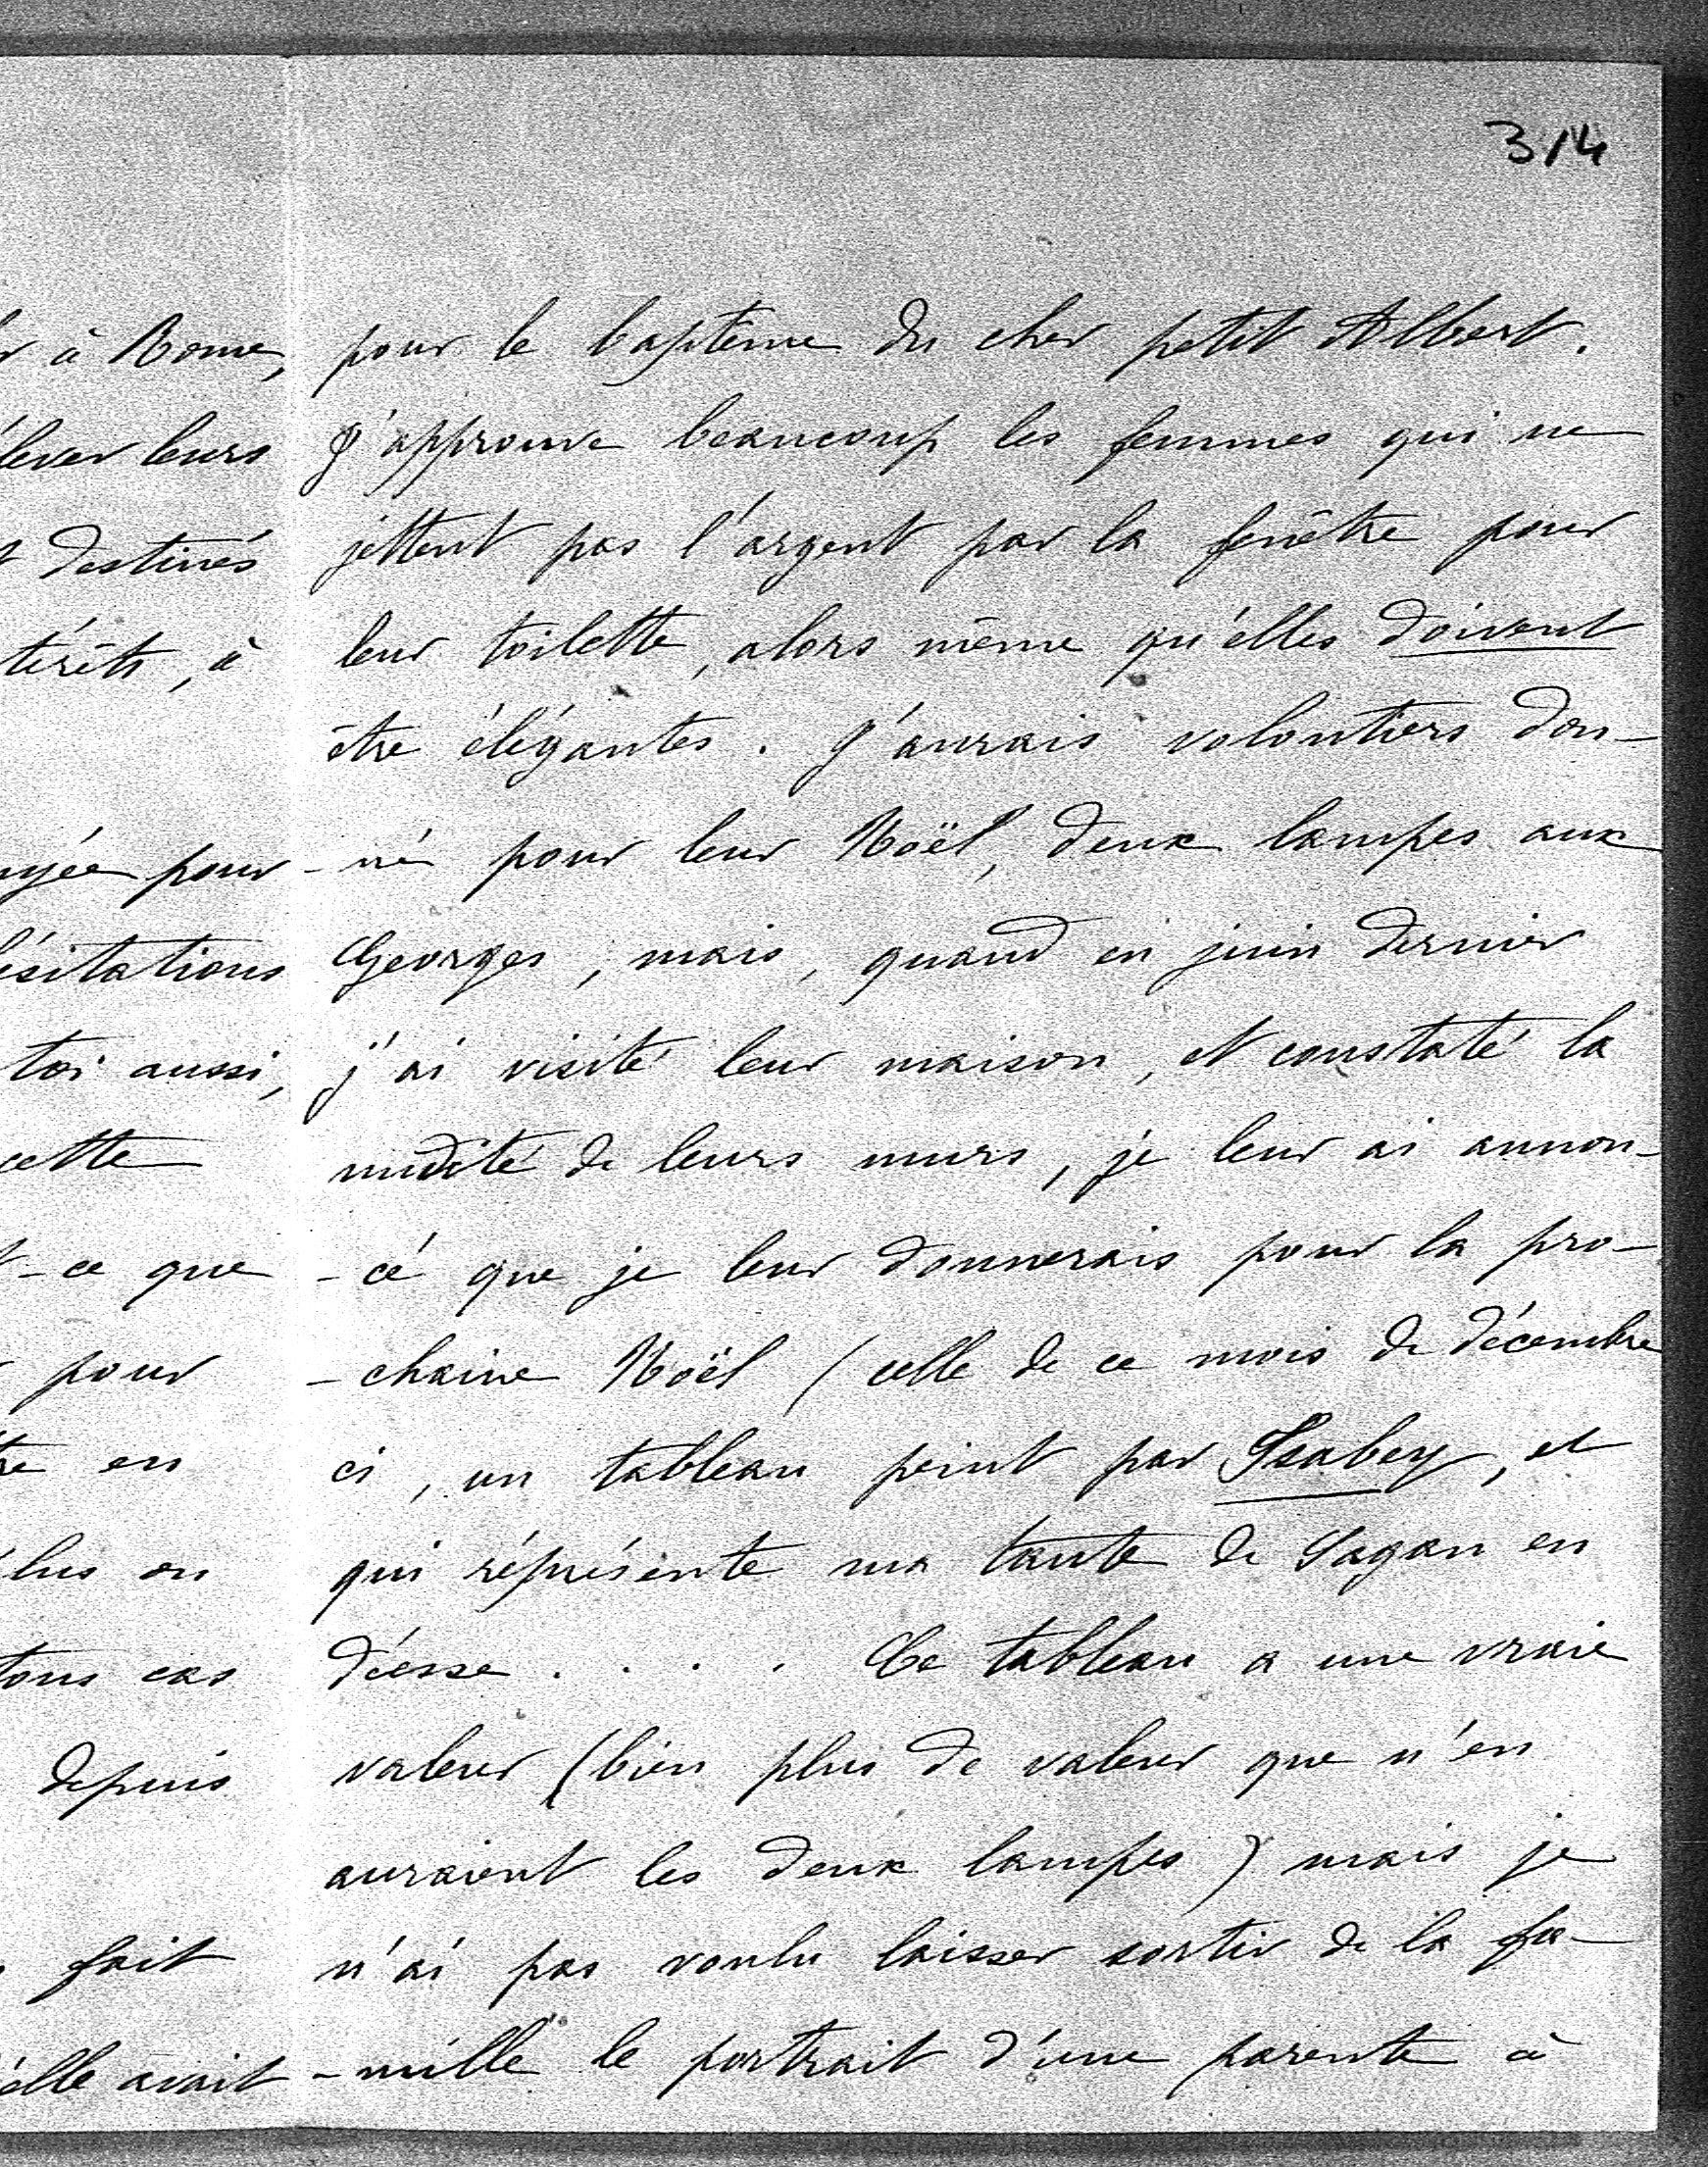 314
à Rome,
lever leurs
destinés
térêts, à
yée pour
hésitations
toi aussi,
cette
-ce que
pour
en
plus on
tous cas
depuis
fait
elle avait
pour le baptême du cher petit Albert.
J'approuve beaucoup les femmes qui ne
jettent pas l'argent par la fenêtre pour
leur toilette, alors même qu'elles doivent
être élégantes. J'aurais volontiers don-
-né pour leur Noël, deux lampes aux
Georges, mais, quand en juin dernier
j'ai visité leur maison, et constaté la
nudité de leurs murs, je leur ai annon-
-cé que je leur donnerais pour la pro-
-chaine Noël (celle de ce mois de décembre
ci, un tableau peint par Isabey, et
qui réprésente ma tante de Sagan en
déesse . . . . Ce tableau a une vraie
valeur (bien plus de valeur que n'en
auraient les deux lampes) mais je
n'ai pas voulu laisser sortir de la fa-
-mille le portrait d'une parente à